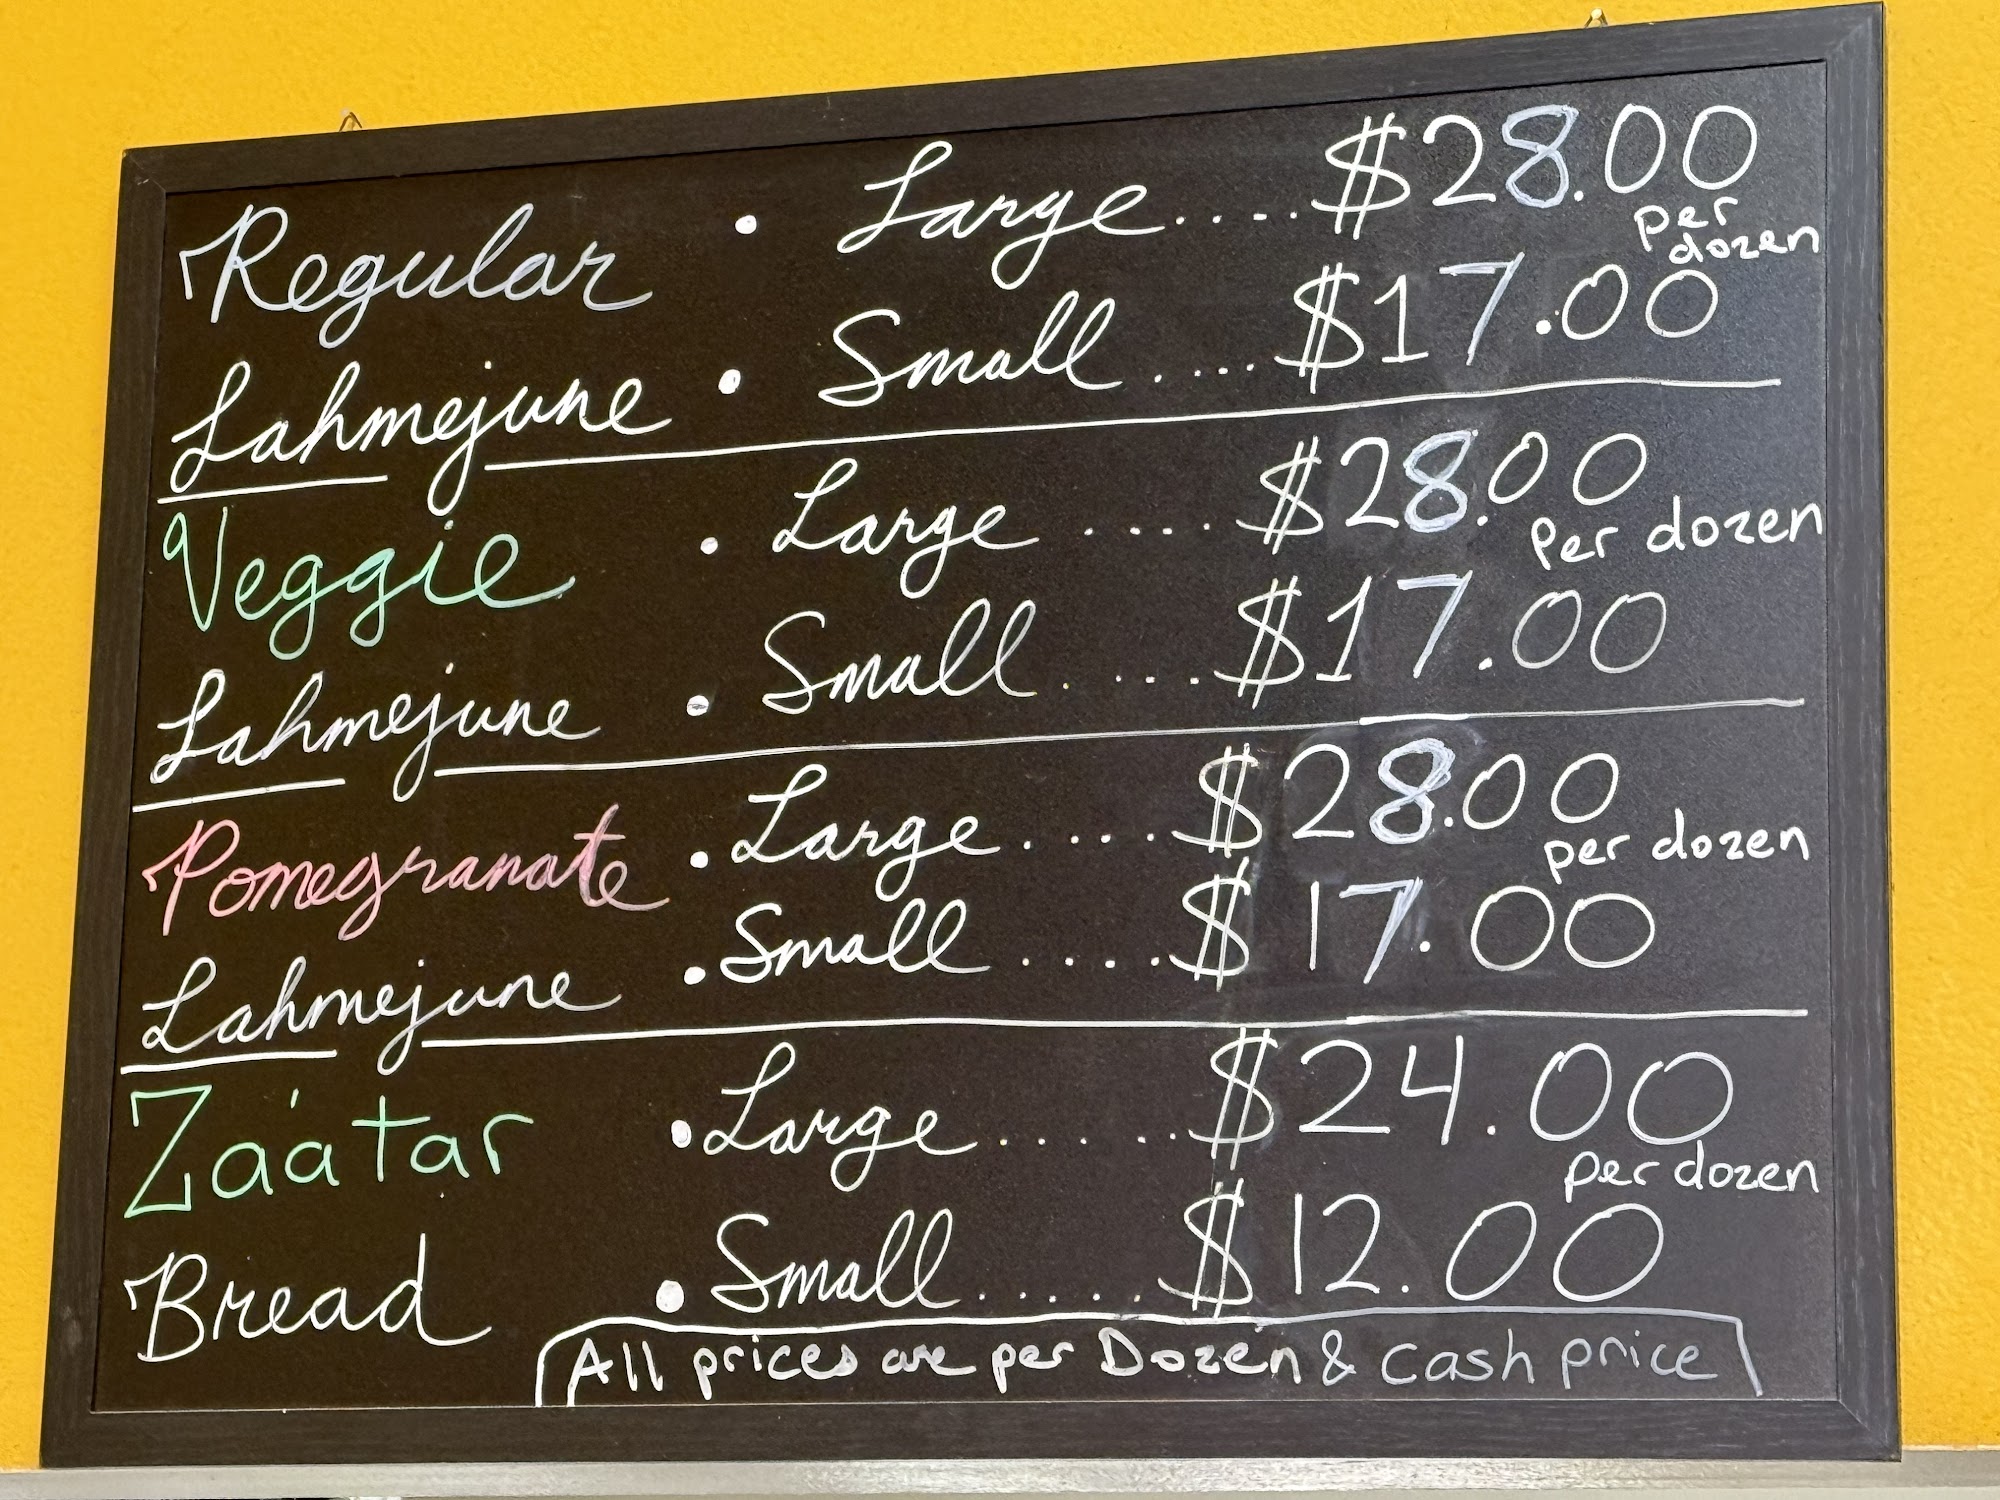 Regular • Large.....$28.00
per
dozen
Lahmejune • Small.....$17.00
Veggie • Large.....$28.00
Per dozen
Lahmejune • Small.....$17.00
Pomegranate • Large.....$28.00
per dozen
Lahmejune • Small.....$17.00
Za'atar • Large.....$24.00
per dozen
Bread • Small......$12.00
All prices are per Dozen & cash price